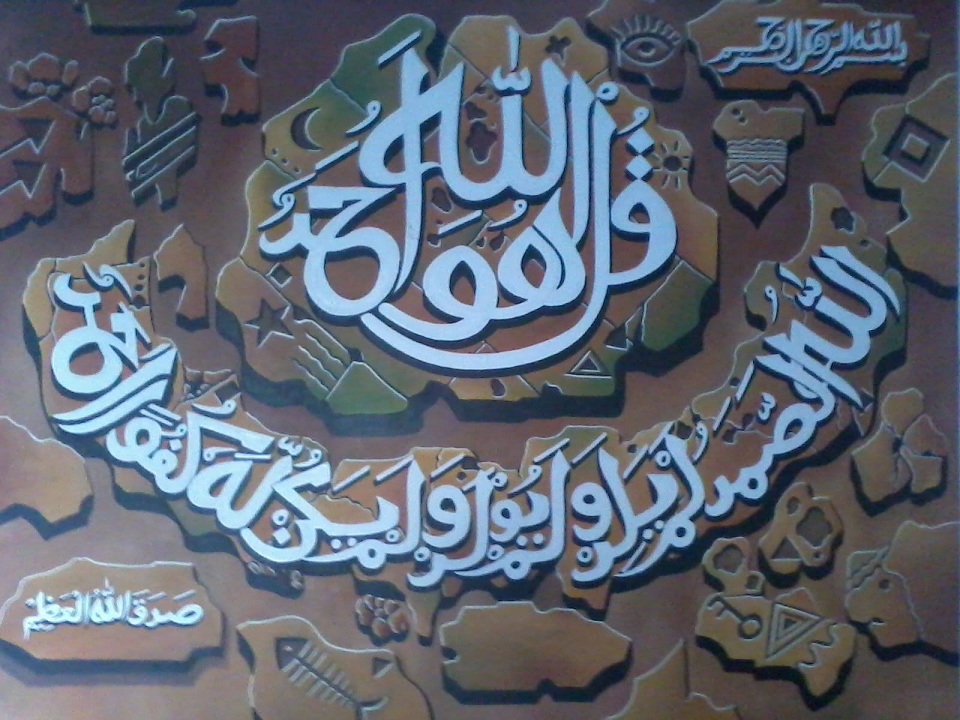 بسم الله الرحمن الرحيم
قُل هُوَ اللّٰهُ أَحَدٌ
اللّٰهُ الصَّمَدُ لَم يَلِد وَلَم يُولَد وَلَم يَكُن لَهُ كُفُوًا أَحَدٌ
صَدَقَ اللّٰهُ العَظِيم